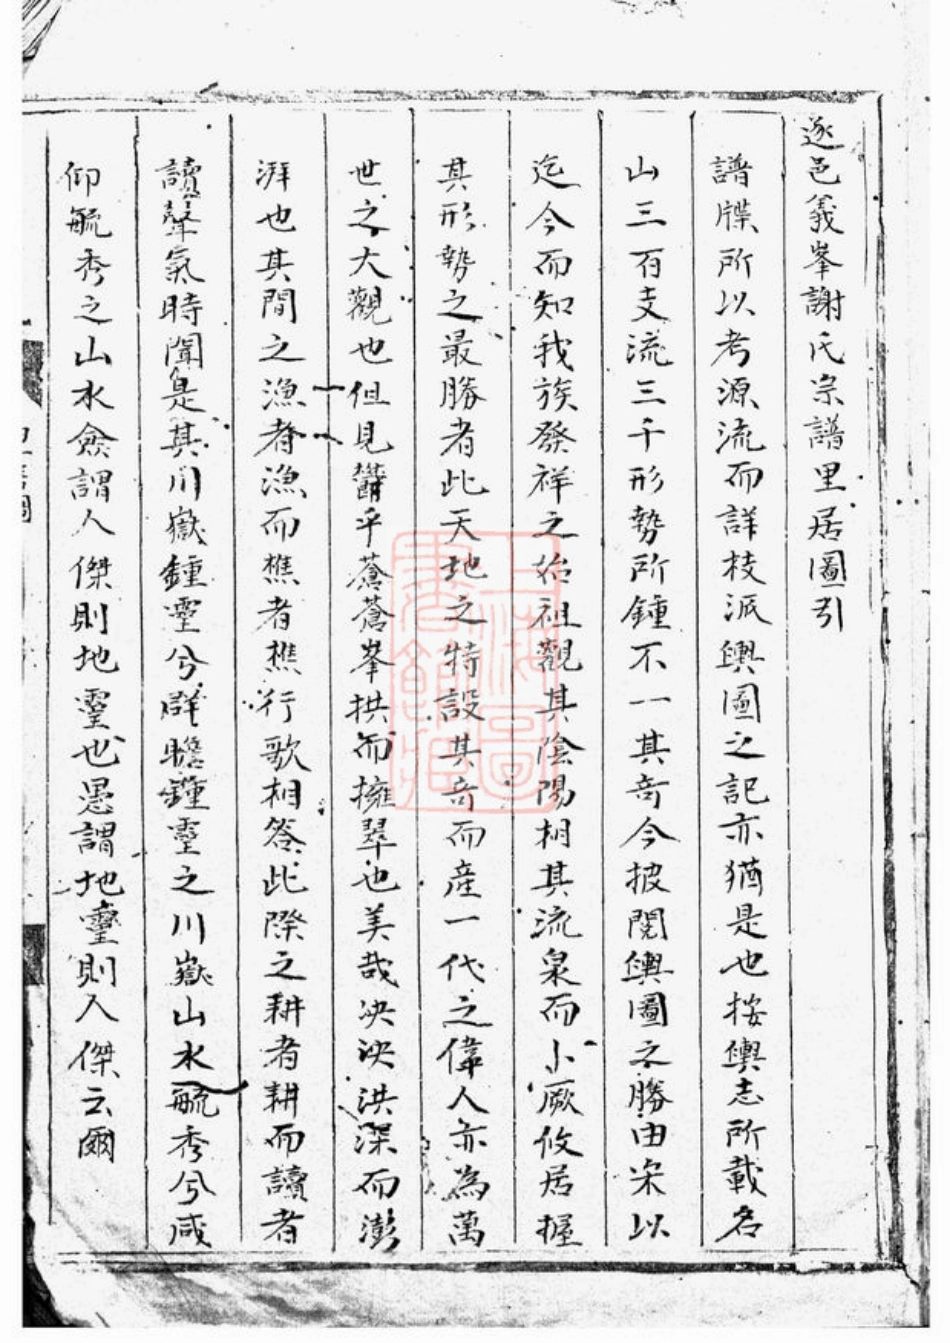 遂邑義峯謝氏宗譜里居圖引
譜牒所以考源流而詳枝派輿圖之記亦猶是也按輿志所載名
山三百支流三千形勢所鍾不一其奇今披閱輿圖之勝由宋以
迄今而知我族發祥之始祖觀其陰陽相其流泉而卜厥攸居握
其形勢之最勝者此天地之特設其奇而產一代之偉人亦為萬
世之大觀也但見鬱乎蒼蒼峯拱而擁翠也美哉泱泱洪深而澎
湃也其間之漁者漁而樵者樵行歌相答此際之耕者耕而讀者
讀聲氣時聞是其川嶽鍾靈兮群瞻鍾靈之川嶽山水毓秀兮咸
仰毓秀之山水僉謂人傑則地靈也愚謂地靈則人傑云爾
上海圖書館藏